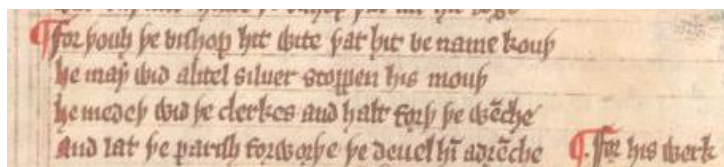 ¶ For þouȝ þe bishop hit wite þat hit be name kouþ
he may wid alitel siluer stoppen his mouþ
he medeþ wid þe clerkes and halt forþ þe wēche
And lat þe parish forworþe þe deuel hī adrēche ¶. For his werk